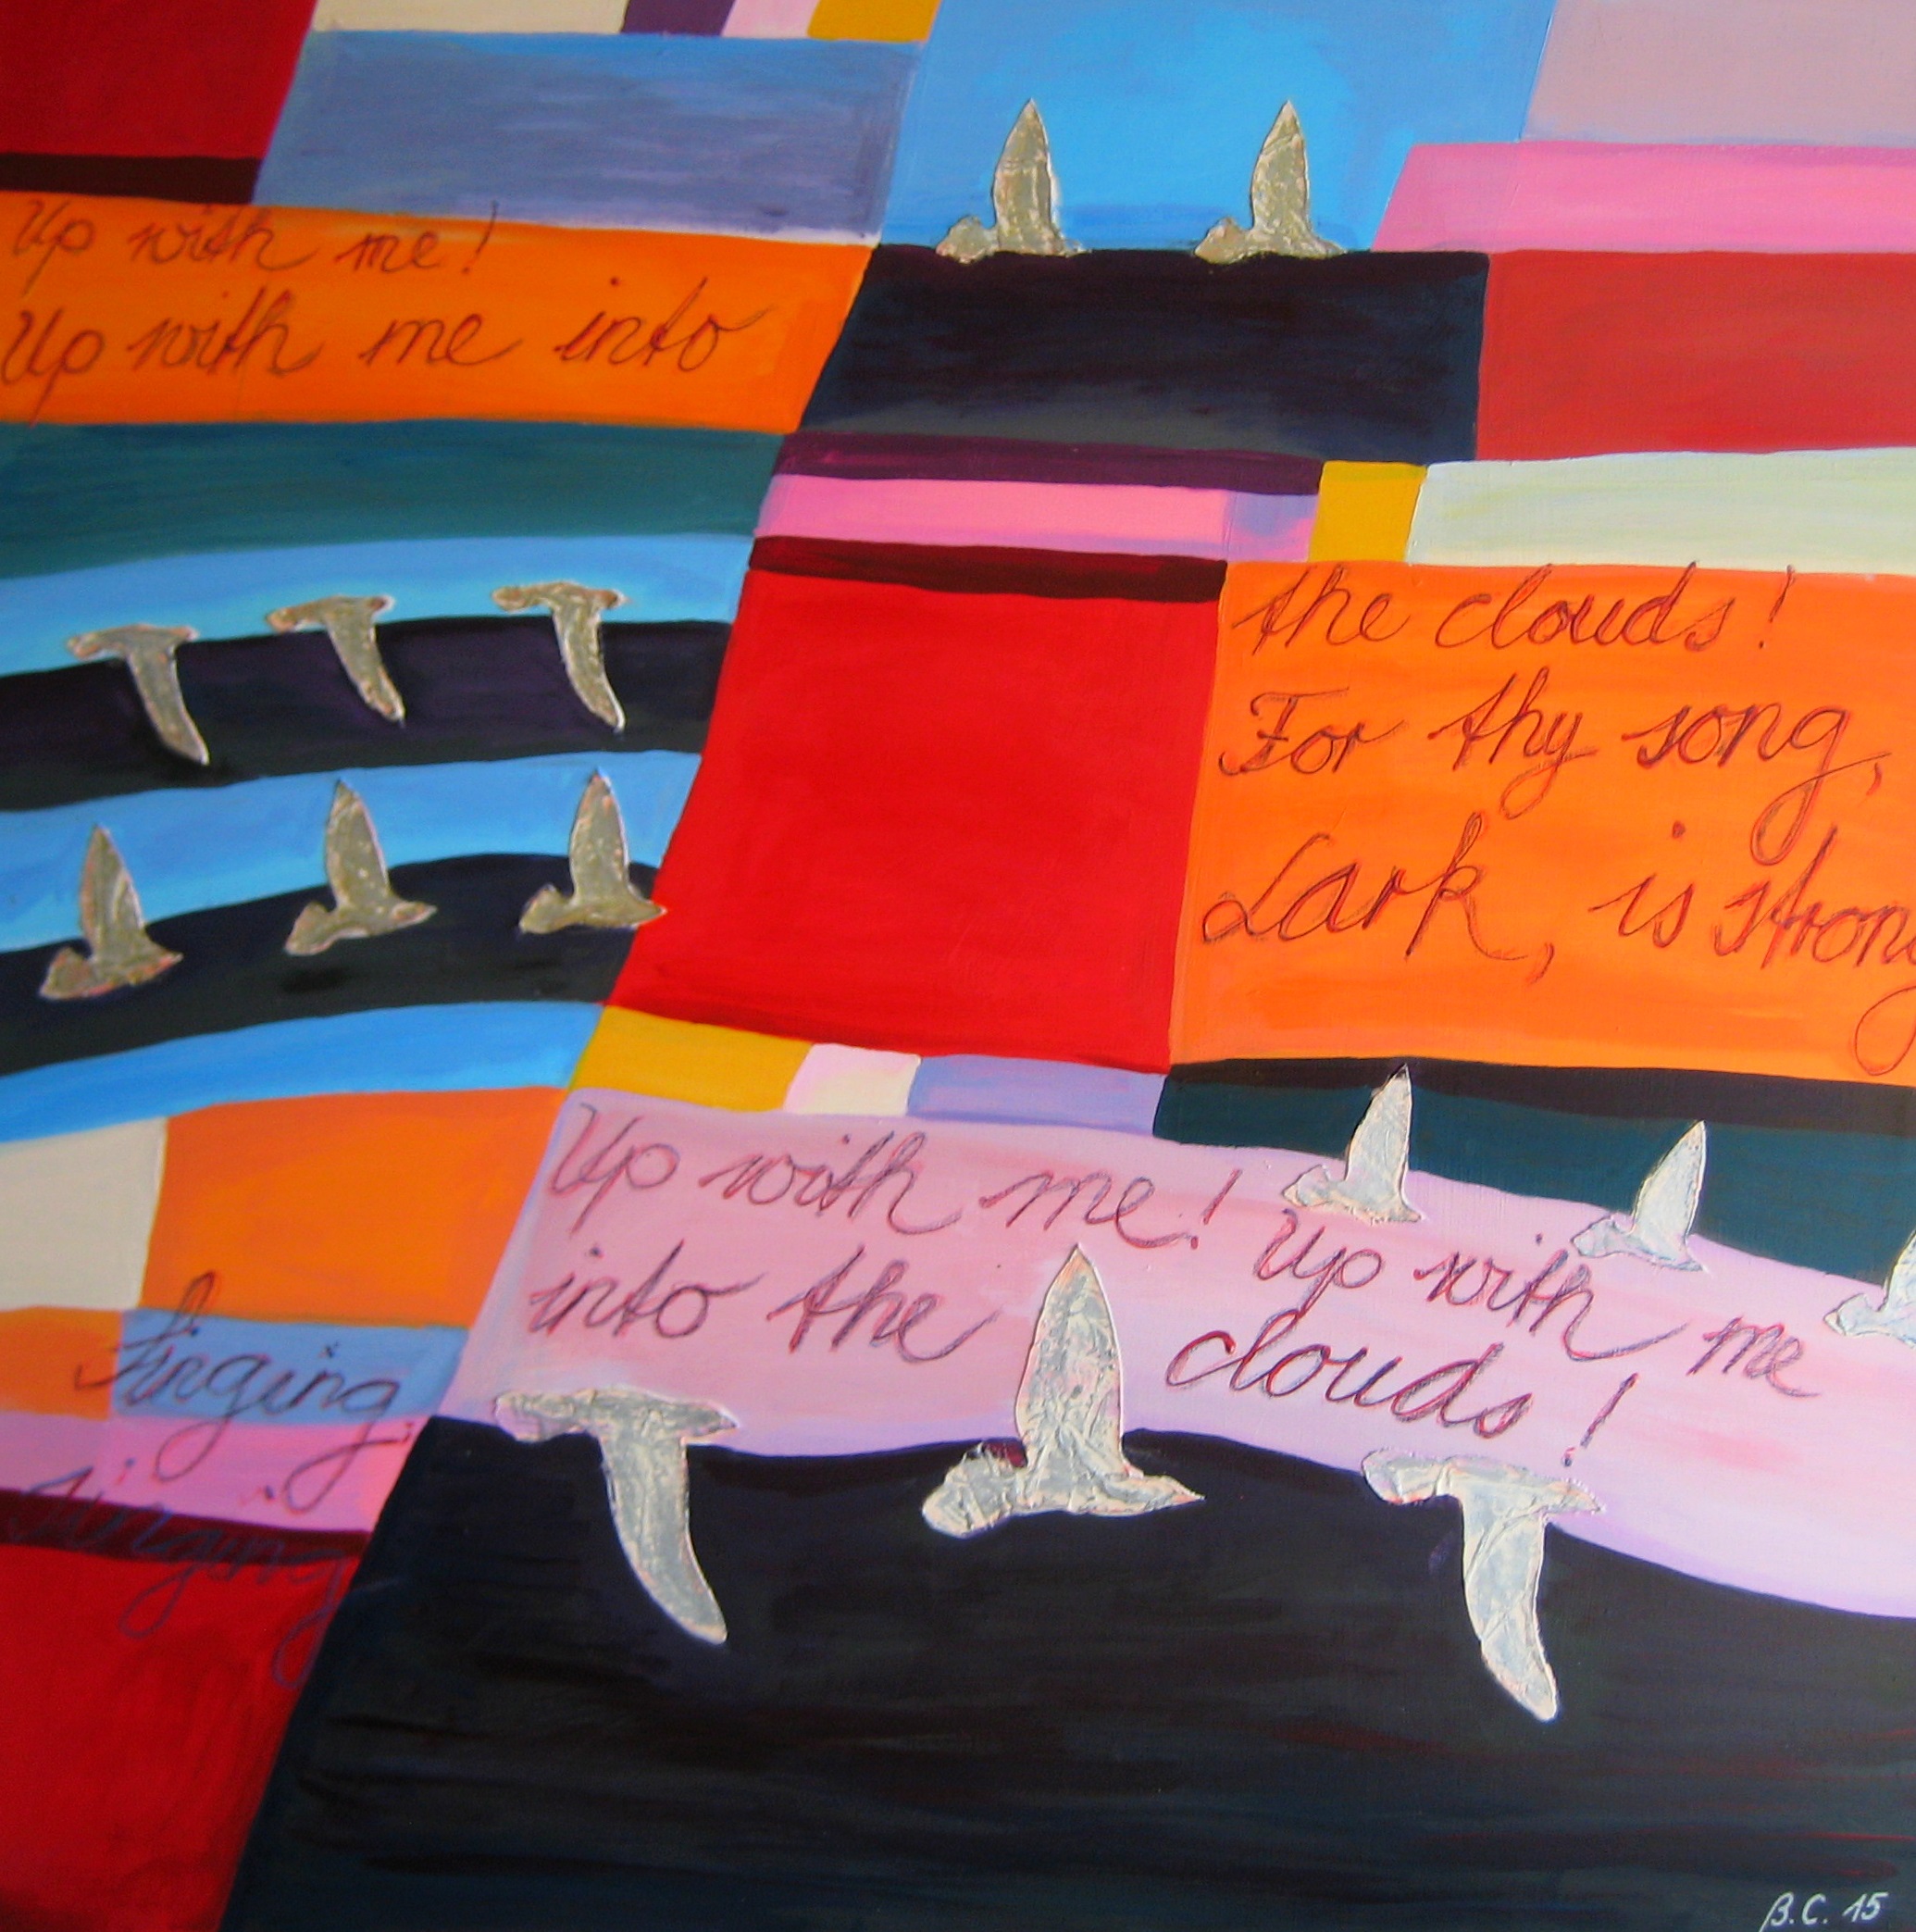 Up with me!
Up with me into
the clouds!
For thy song,
Lark, is strong
Up with me! Up with me
into the clouds!
Singing,
Singing
B.C. 15